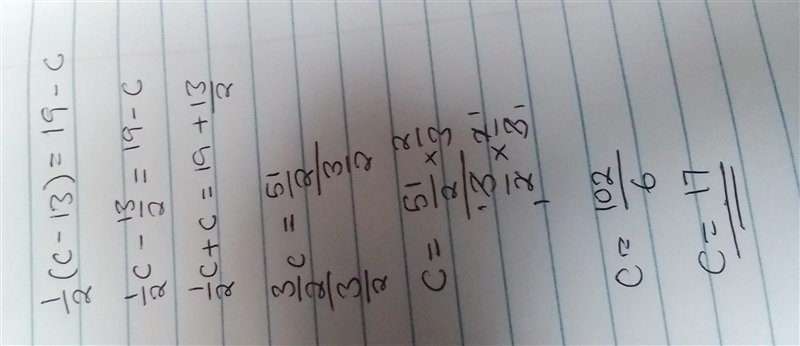 1/2(c - 13) = 19 - c
1/2c - 13/2 = 19 - c
1/2c + c = 19 + 13/2
3/2c / 3/2 = 51/2 / 3/2
c = 51/2 × 2/3 / 3/2 × 2/3
c = 102/6
c = 17